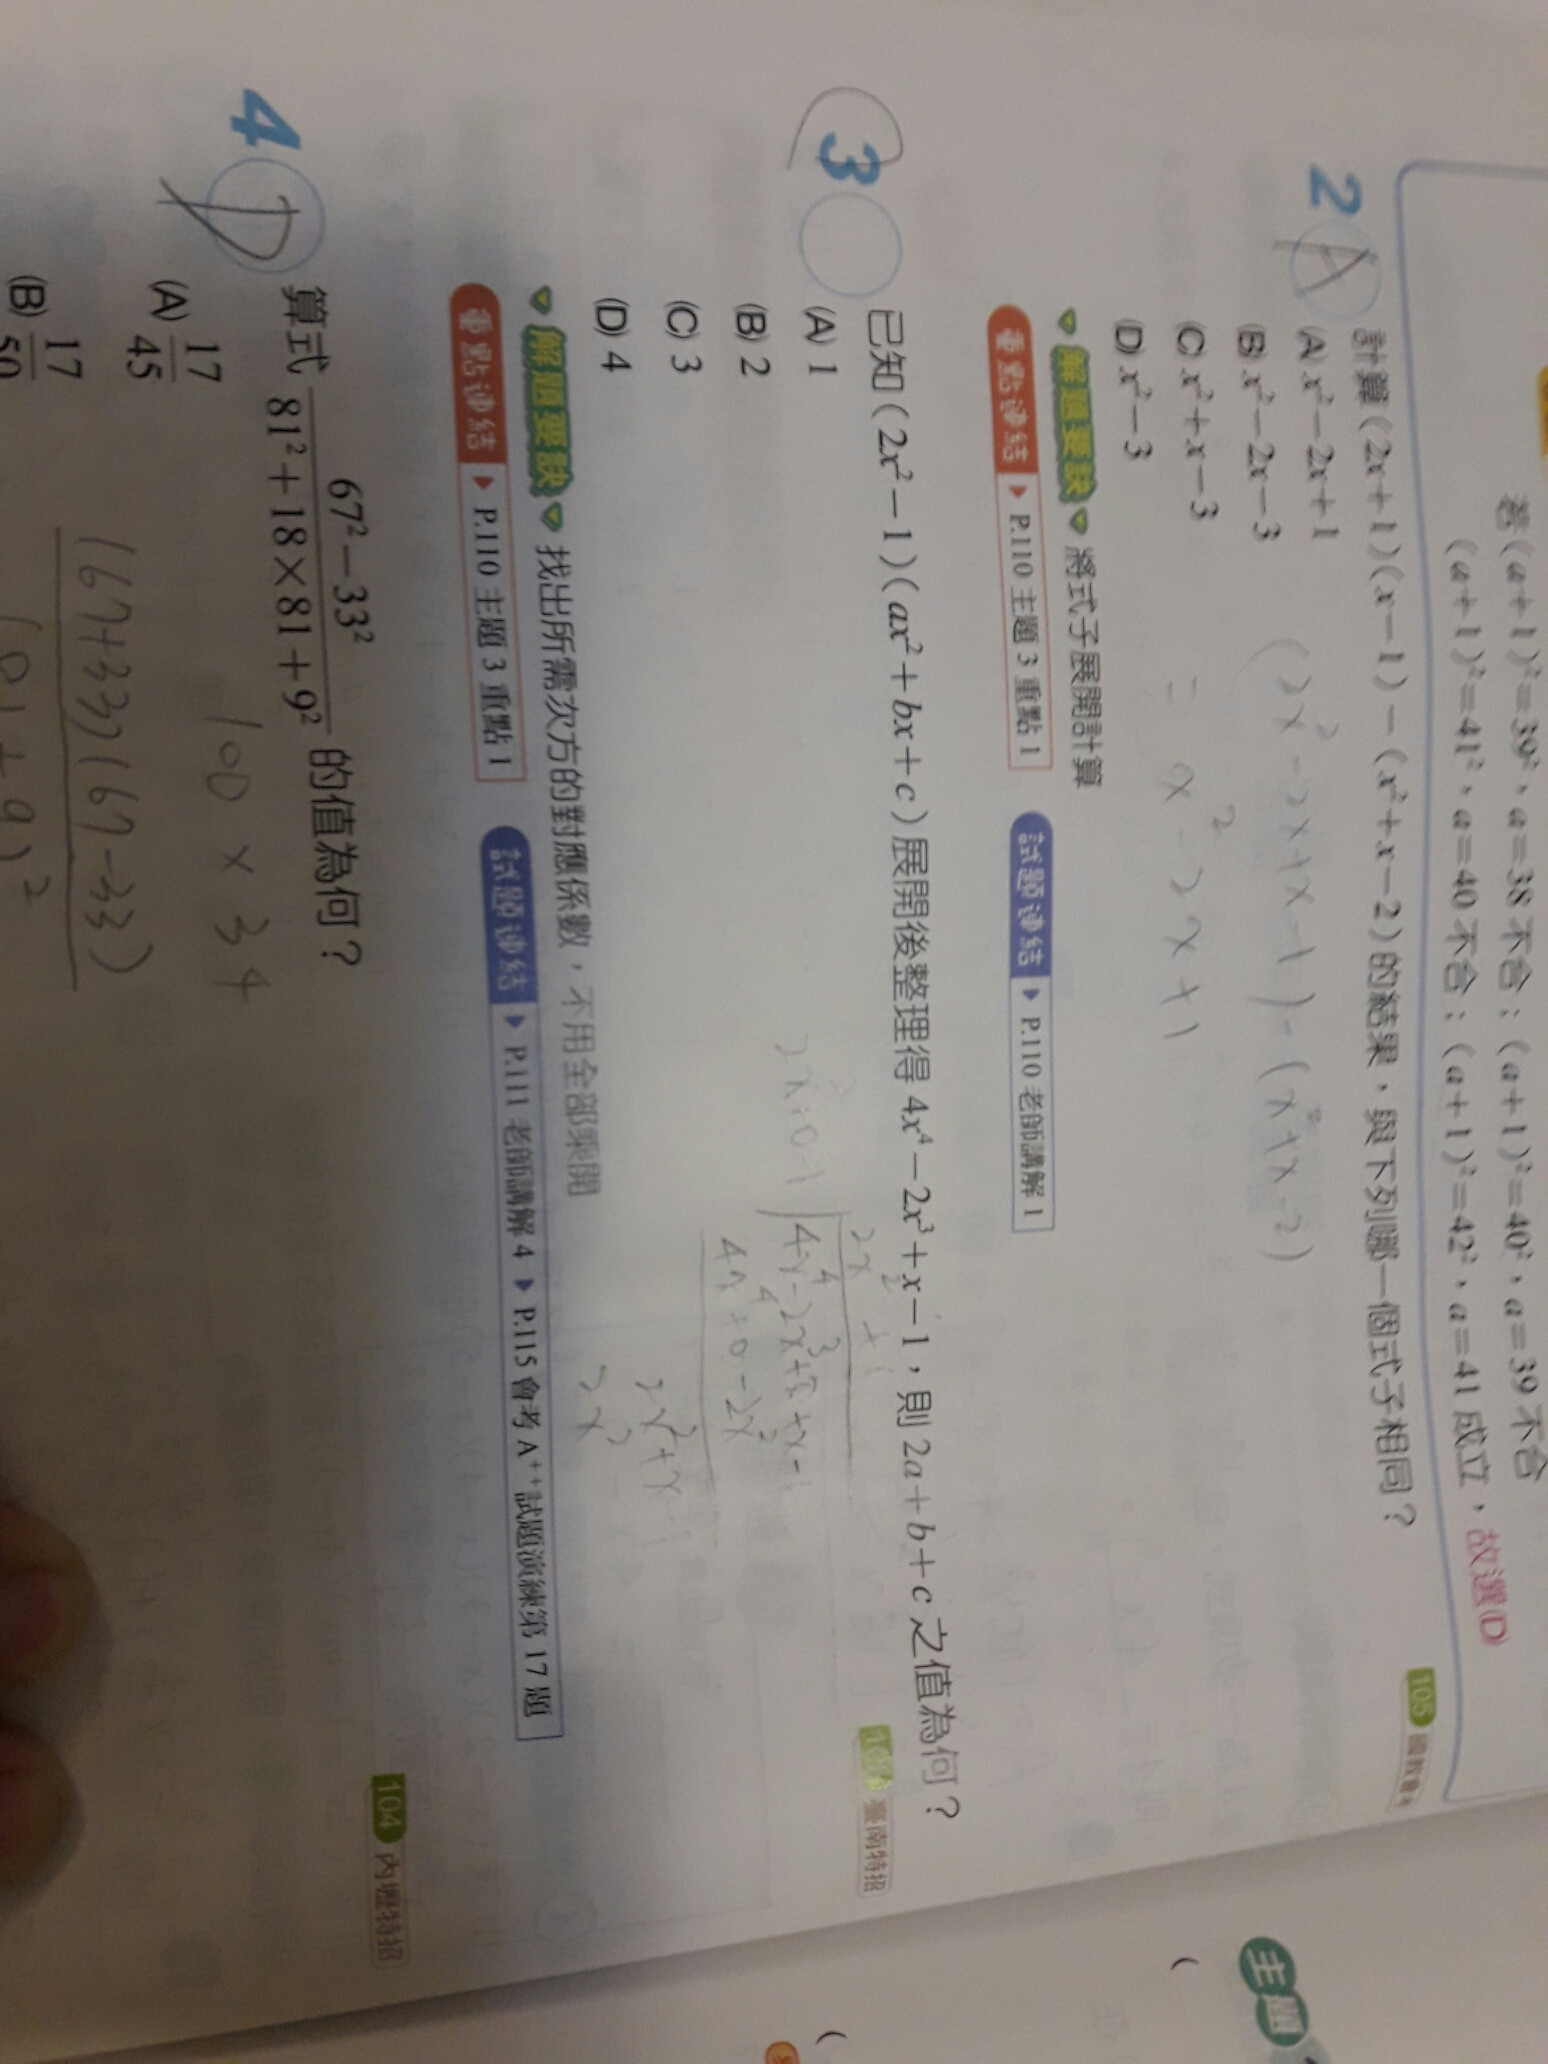 若(a+1)²=39²、a=38 不合；(a+1)²=40²、a=39 不合
(a+1)²=41²、a=40 不合；(a+1)²=42²、a=41 成立，故選(D)
105
2
A
計算(2x+1)(x−1)−(x²+x−2)的結果，與下列哪一個式子相同？
(A) x²−2x+1
(B) x²−2x−3
(C) x²+x−3
(D) x²−3
(2x²−2x+x−1)−(x²+x−2)
= x²−2x+1
解題要訣 將式子展開計算
重點連結 P.110 主題 3 重點 1 試題連結 P.110 老師講解 1
臺南特招
3
已知(2x²−1)(ax²+bx+c)展開後整理得 4x⁴−2x³+x−1，則 2a+b+c 之值為何？
(A) 1
(B) 2
(C) 3
(D) 4
2x²+1
2x²+0−1
4x⁴+0−2x²
2x²+x−1
2x²
解題要訣 找出所需次方的對應係數，不用全部乘開
重點連結 P.110 主題 3 重點 1 試題連結 P.111 老師講解 4 P.115 會考 A⁺⁺試題演練第 17 題
104 內壢特招
4
D
算式 (67²−33²)/(81²+18×81+9²) 的值為何？
(A) 17/45
(B) 17/50
100×34
(67+33)(67−33)
主題